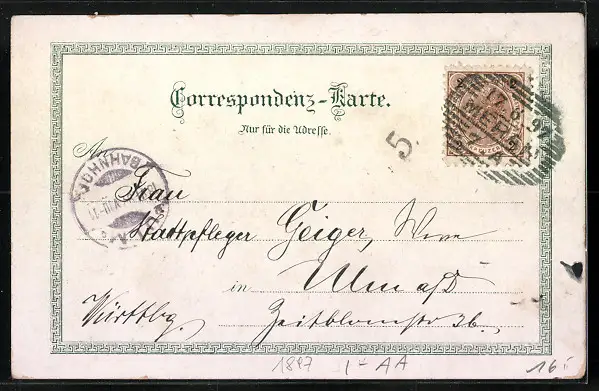 Correspondenz-Karte.
Nur für die Adresse.
17.8.97
MERAN
5
An
BAHNHOF
Frau
Stadtpfleger Geiger, Wwe
in Ulm a/D
Württbg. Zeitblomstr 36.
1897 1- AA
16.-